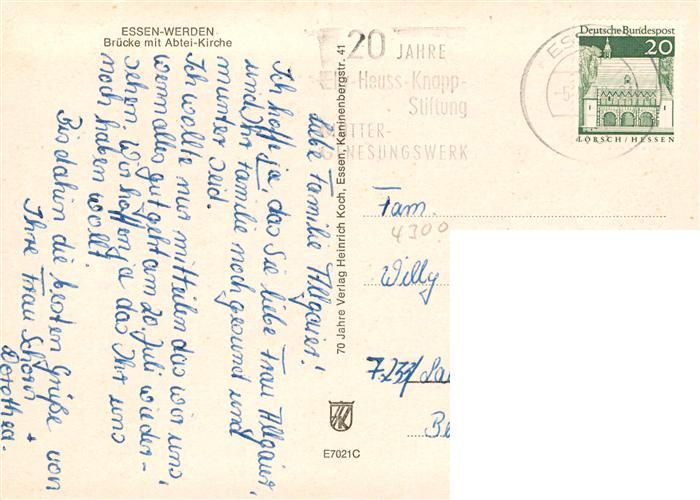 ESSEN-WERDEN
Brücke mit Abtei-Kirche
liebe Familie Allgaier!
Ich hoffe ja das Sie liebe Frau Allgaier,
und Ihr Familie noch gesund und
munter seid.
Ich wollte nur mitteilen das wir uns,
wenn alles gut geht am 20. Juli wieder-
sehen. Wir hoffen ja das Ihr uns
noch haben wollt.
Bis dahin die besten Grüße von
Ihre Frau Schorn +
Dorothea.
70 Jahre Verlag Heinrich Koch, Essen, Kaninenbergstr. 41
E7021C
20 JAHRE
Elly-Heuss-Knapp-
Stiftung
MÜTTER-
GENESUNGSWERK
Deutsche Bundespost
20
LORSCH/HESSEN
Fam.
4300
Willy